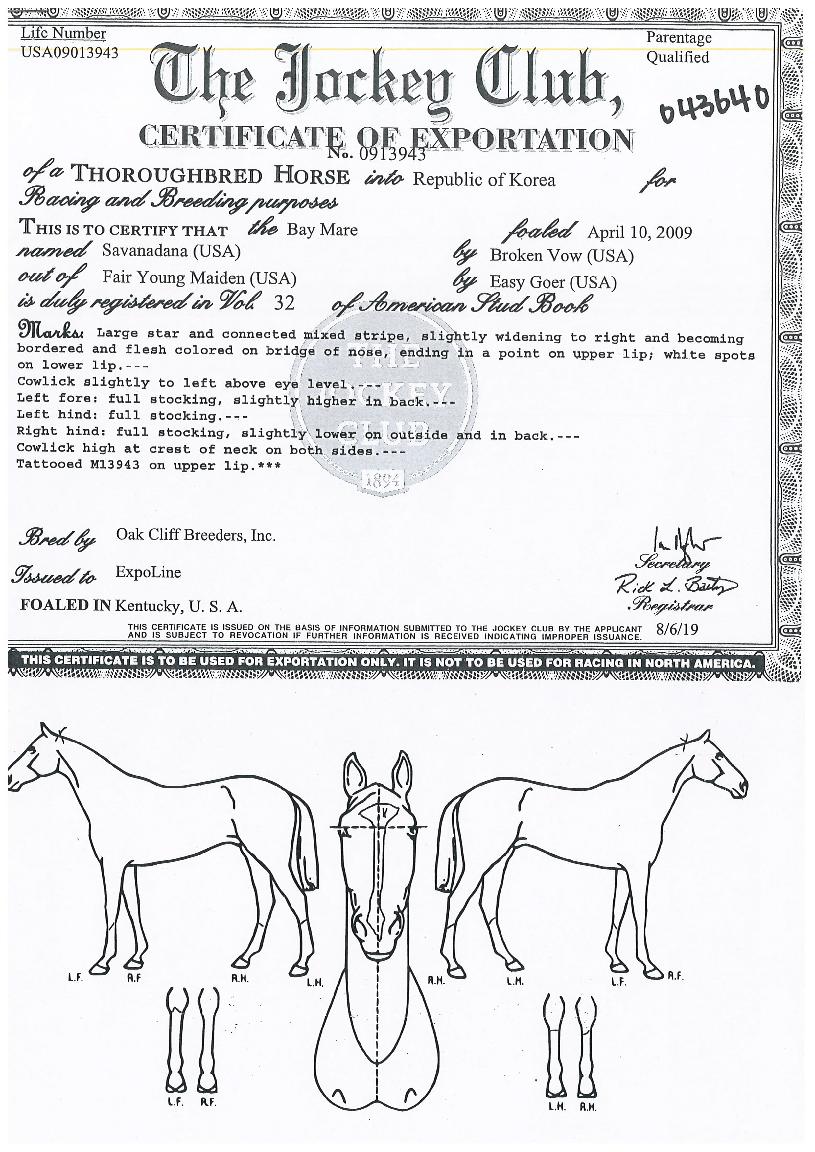 Life Number
USA09013943
Parentage
Qualified
The Jockey Club,
043640
CERTIFICATE OF EXPORTATION
No. 0913943
of a THOROUGHBRED HORSE into Republic of Korea for
Racing and Breeding purposes
THIS IS TO CERTIFY THAT the Bay Mare foaled April 10, 2009
named Savanadana (USA) by Broken Vow (USA)
out of Fair Young Maiden (USA) by Easy Goer (USA)
is duly registered in Vol. 32 of American Stud Book
Marks: Large star and connected mixed stripe, slightly widening to right and becoming
bordered and flesh colored on bridge of nose, ending in a point on upper lip; white spots
on lower lip.---
Cowlick slightly to left above eye level.---
Left fore: full stocking, slightly higher in back.---
Left hind: full stocking.---
Right hind: full stocking, slightly lower on outside and in back.---
Cowlick high at crest of neck on both sides.---
Tattooed M13943 on upper lip.***
THE
JOCKEY
CLUB
1894
Bred by Oak Cliff Breeders, Inc.
Issued to ExpoLine
FOALED IN Kentucky, U. S. A.
Secretary
Rick L. Bailey
Registrar
THIS CERTIFICATE IS ISSUED ON THE BASIS OF INFORMATION SUBMITTED TO THE JOCKEY CLUB BY THE APPLICANT
AND IS SUBJECT TO REVOCATION IF FURTHER INFORMATION IS RECEIVED INDICATING IMPROPER ISSUANCE.
8/6/19
THIS CERTIFICATE IS TO BE USED FOR EXPORTATION ONLY. IT IS NOT TO BE USED FOR RACING IN NORTH AMERICA.
L.F. R.F R.H. L.H. R.H. L.H. L.F. R.F.
L.F. R.F. L.H. R.H.